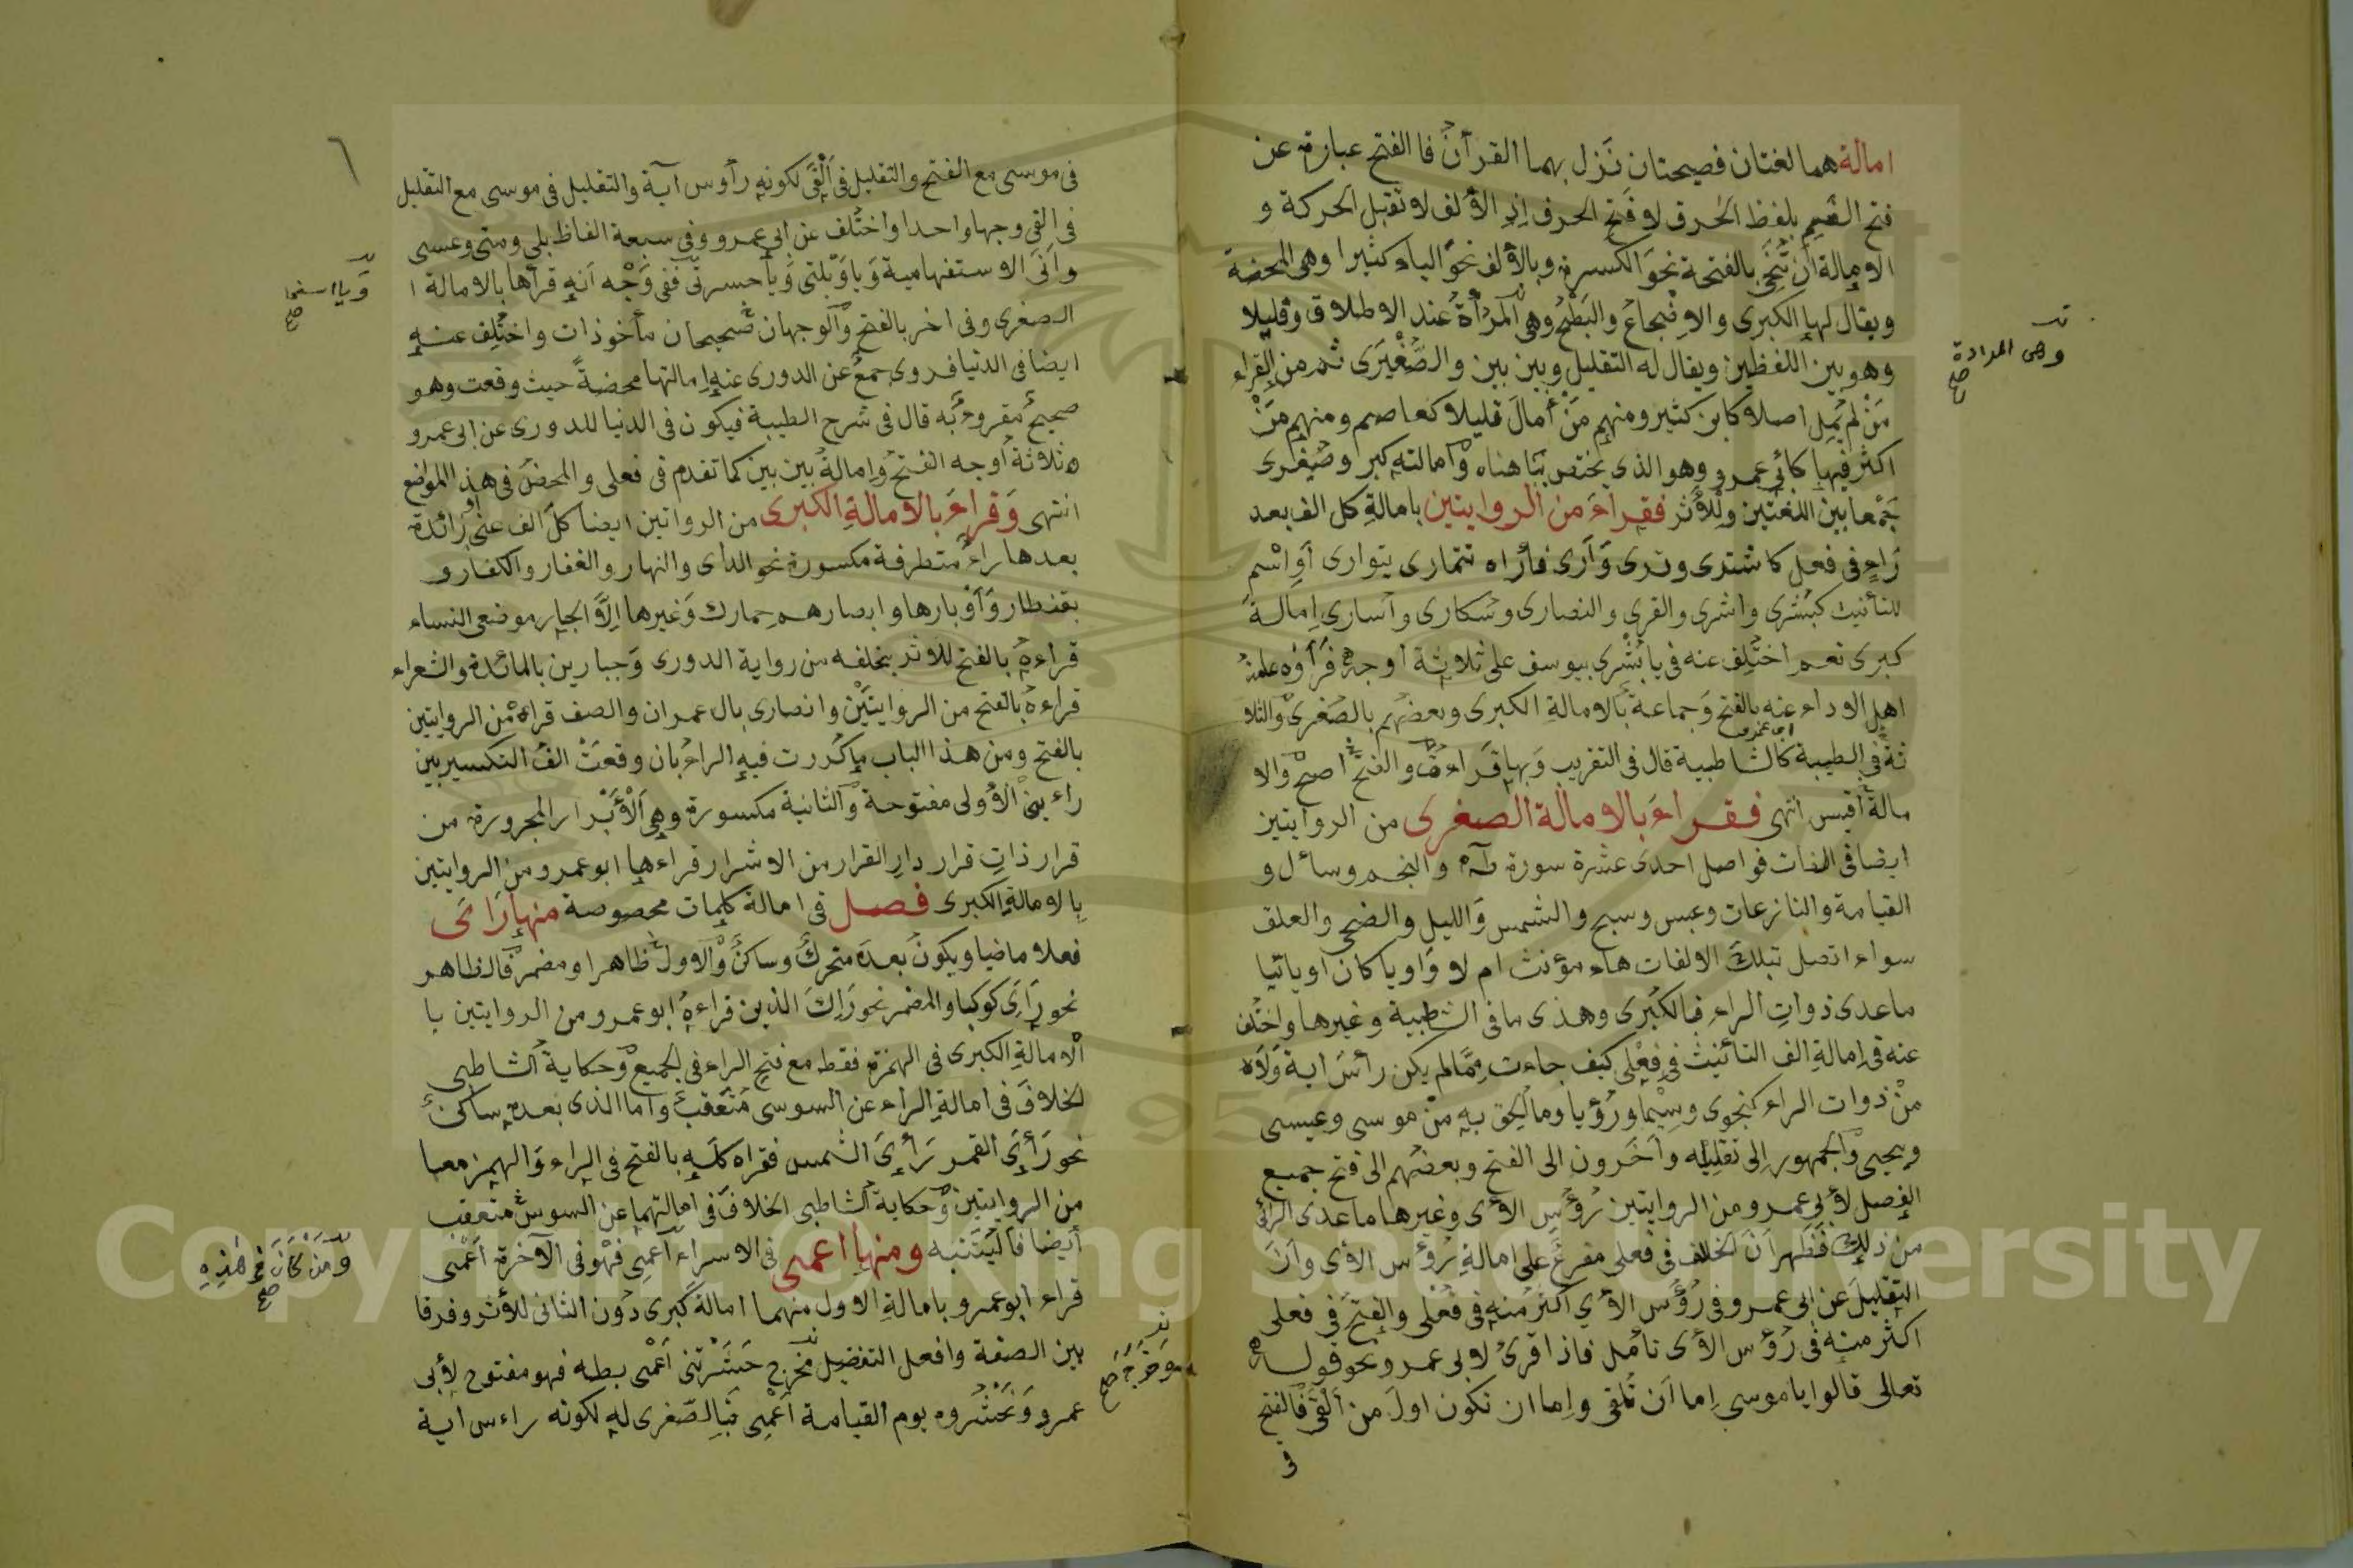 امالة هما لغتان فصيحتان نزل بهما القرآن فا الفتح عبارة عن
فتح الفم بلفظ الحرف لا فتح الحرف اذ الألف لا تقبل الحركة و
الامالة ان تنحى بالفتحة نحو الكسرة وبالألف نحو الياء كثيرا وهى المحضة
ويقال لها الكبرى والاضجاع والبطح وهى المرادة عند الاطلاق وقليلا
وهو بين اللفظين ويقال له التقليل وبين بين والصغيرى ثم من القراء
من لم يمل اصلا كابن كثير ومنهم من أمال قليلا كعاصم ومنهم من
اكثر فيها كابى عمرو وهو الذى يختص بنا هنا وامالته كبر وصغرى
جمعا بين اللغتين وللأثر فقراء من الروايتين بامالة كل الف بعد
راء فى فعل كاشترى وترى وأرى فأراه تتمارى يتوارى أو اسم
للتأنيث كبشرى واشرى والقرى والنصارى وسكارى وأسارى امالة
كبرى نعم اختلف عنه فى يا بشرى بيوسف على ثلاثة أوجه
اهل الاداء عنه بالفتح وجماعة بالامالة الكبرى وبعضهم بالصغرى والثلا
ثة فى الطيبة كالشاطبية قال فى التقريب وبها قراءت والفتح اصح والا
مالة أقيس انتهى فقراء بالامالة الصغرى من الروايتين
ايضا فى الفات فواصل احدى عشرة سورة طه والنجم وسأل و
القيامة والنازعات وعبس وسبح والشمس والليل والضحى والعلق
سواء اتصل بتلك الالفات هاء مؤنث ام لا واويا كان او يائيا
ماعدى ذوات الراء فبالكبرى وهذى ما فى الشاطبية وغيرها واختلف
عنه فى امالة الف التأنيث فى فعلى كيف جاءت مما لم يكن رأس اية ولا
من ذوات الراء كنجوى وسيما ورؤيا وما ألحق به من موسى وعيسى
ويحيى والجمهور الى تقليله وآخرون الى الفتح وبعضهم الى فتح جميع
الفصل لأبى عمرو من الروايتين رؤس الآى وغيرها ماعدى الرائى
من ذلك فظهر ان الخلاف فى فعلى مفرع على امالة رؤس الآى وأن
التقليل عن ابى عمرو فى رؤس الآي اكثر منه فى فعلى والفتح فى فعلى
اكثر منه فى رؤس الآى تأمل فاذا قرئ لابى عمرو نحو قوله
تعالى قالوا يا موسى إما أن تلقى وإما ان نكون اول من ألقى فالفتح
فى
وهى المرادة
صح
فى موسى مع الفتح والتقليل فى ألقى لكونه رأوس آية والتقليل فى موسى مع التقليل
فى القى وجها واحدا واختلف عن ابى عمرو وفى سبعة الفاظ بلى ومتى وعسى
وأنى الاستفهامية ويا ويلتى ويا حسرتى ففى وجه انه قرأها بالامالة ا
الصغرى وفى اخر بالفتح والوجهان صحيحان مأخوذات واختلف عنه
ايضا فى الدنيا فروى جمع عن الدورى عنه امالتها محضة حيث وقعت وهو
صحيح مقروء به قال فى شرح الطيبة فيكون فى الدنيا للدورى عن ابى عمرو
ه ثلاثة أوجه الفتح وامالة بين بين كما تقدم فى فعلى والمحض فى هذ المواضع
انتهى وقراء بالامالة الكبرى من الرواتين ايضا كل الف عنى زائدة
بعدها راء متطرفة مكسورة نحو الدار والنهار والغفار والكفار و
بقنطار وأوبارها وابصارهم حمارك وغيرها الا الجار موضعى النساء
قراءه بالفتح للاثر بخلفه من رواية الدورى وجبارين بالمائدة والشعراء
قراءه بالفتح من الروايتين وانصارى بال عمران والصف قراءه من الروايتين
بالفتح ومن هذا الباب ما كررت فيه الراء بان وقعت الف التكسير بين
راء ين الأولى مفتوحة والثانية مكسورة وهى الأبرار المجرورة من
قرار ذات قرار دار القرار من الاشرار قراءها ابو عمرو من الروايتين
بالامالة الكبرى فصل فى امالة كلمات مخصوصة منها رأى
فعلا ماضيا ويكون بعده متحرك وساكن والاول ظاهرا ومضمر فالظاهر
نحو رأى كوكبا والمضمر نحو رآك الذين قراءه ابو عمرو من الروايتين با
الامالة الكبرى فى الهمزة فقط مع فتح الراء فى الجميع وحكاية الشاطبى
الخلاف فى امالة الراء عن السوسى متعقب واما الذى بعده ساكن
نحو رأى القمر رأى الشمس فقراه كله بالفتح فى الراء والهمز معا
من الروايتين وحكاية الشاطبى الخلاف فى امالتهما عن السوسى متعقب
أيضا فاليتنبه ومنها اعمى فى الاسراء اعمى فهو فى الآخرة أعمى
قراء ابو عمرو بامالة الاول منهما امالة كبرى دون الثانى للأثر وفرقا
بين الصفة وافعل التفضيل فخرج حشرتنى أعمى بطه فهو مفتوح لأبى
عمرو ونحشره يوم القيامة أعمى فبالصغرى له لكونه راءس اية
ويا اسفى
صح
ومن كان فى هذه
صح
وخرج صح
Copyright © King Saud University
1957